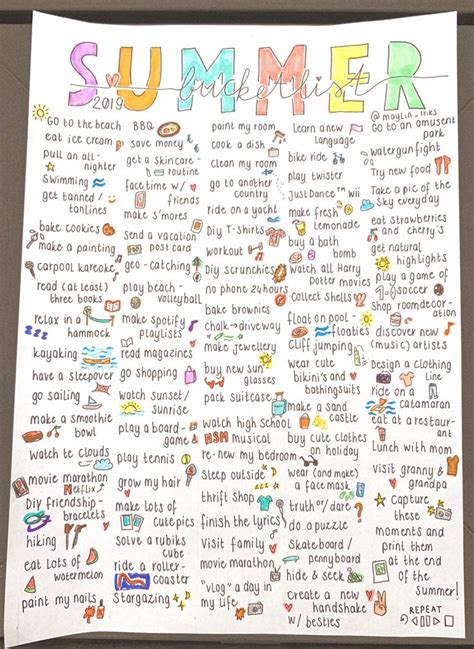 SUMMER
bucketlist
2019
@maylin_inks
Go to the beach
eat ice cream
pull an all-
nighter
Swimming
get tanned /
tanlines
bake cookies
make a painting
carpool kareoke
read (at least)
three books
relax in a
hammock
kayaking
have a sleepover
go sailing
make a smoothie
bowl
watch te clouds
movie marathon
Netflix
Diy friendship-
bracelets
hiking
eat Lots of
watermelon
paint my nails
BBQ
save money
get a skincare-
routine
facetime w/
friends
make s'mores
send a vacation
post card
geo-catching
play beach-
volleyball
make Spotify
playlists
read magazines
go shopping
watch sunset/
sunrise
play a board-
game
play tennis
grow my hair
make Lots of
cute pics
solve a rubiks
cube
ride a roller-
coaster
Stargazing
paint my room
cook a dish
clean my room
go to another
country
ride on a yacht
Diy T-shirts
workout
Diy scrunchies
no phone 24hours
bake brownies
chalk → driveway
make jewellery
buy new sun
glasses
pack suitcase
watch high school
HSM musical
re-new my bedroom
Sleep outside
thrift Shop
finish the lyrics
Visit family
movie marathon
"vlog" a day in
my life
Learn a new
language
bike ride
play twister
Just Dance wii
make fresh
lemonade
buy a bath
bomb
watch all Harry
potter movies
Collect Shells
float on pool-
floaties
Cliff jumping
wear cute
bikini's and
bathingsuits
make a sand
castle
buy cute clothes
on holiday
wear (and make)
a face mask
truth or/ dare
do a puzzle
Skateboard /
pennyboard
hide & seek
create a new
handshake
w/ besties
Go to an amusent
park
watergun fight
Try new food
Take a pic of the
sky everyday
eat strawberries
and cherry's
get natural
highlights
play a game of
soccer
Shop roomdecor-
ation
discover new
(music) artists
Design a clothing
line
ride on a
catamaran
eat at a restaur-
ant
Lunch with mom
visit granny &
grandpa
capture
these
moments and
print them
at the end
of the
summer!
REPEAT